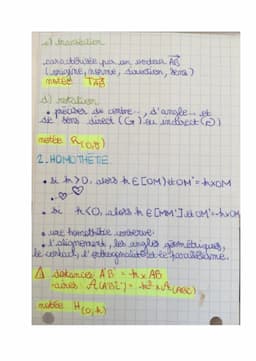 c) translation
caractérisée par un vecteur AB
(origine, norme, direction, sens)
notée T AB
d) rotation
• préciser de centre.., d'angle.. et
de sens direct (G) ou indirect
notée R(O,
2. HOMOTHETIE
• si k>0, alors M' ∈ [OM) et OM' = k×OM
• si k<0, alors et OM' = k×OM
• une homothétie conserve:
• l'alignement, les angles géométriques,
le contact, l'orthogonalité et le parallélisme.
⚠ distances A'B' = k × AB
aires A(A'B'C') = k² × A(ABC)
notée H(O;k)